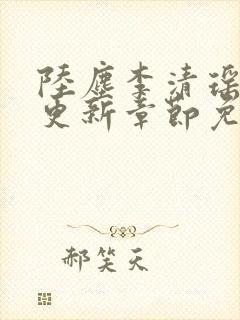 陸塵李清瑤
更新章節免
郝笑天